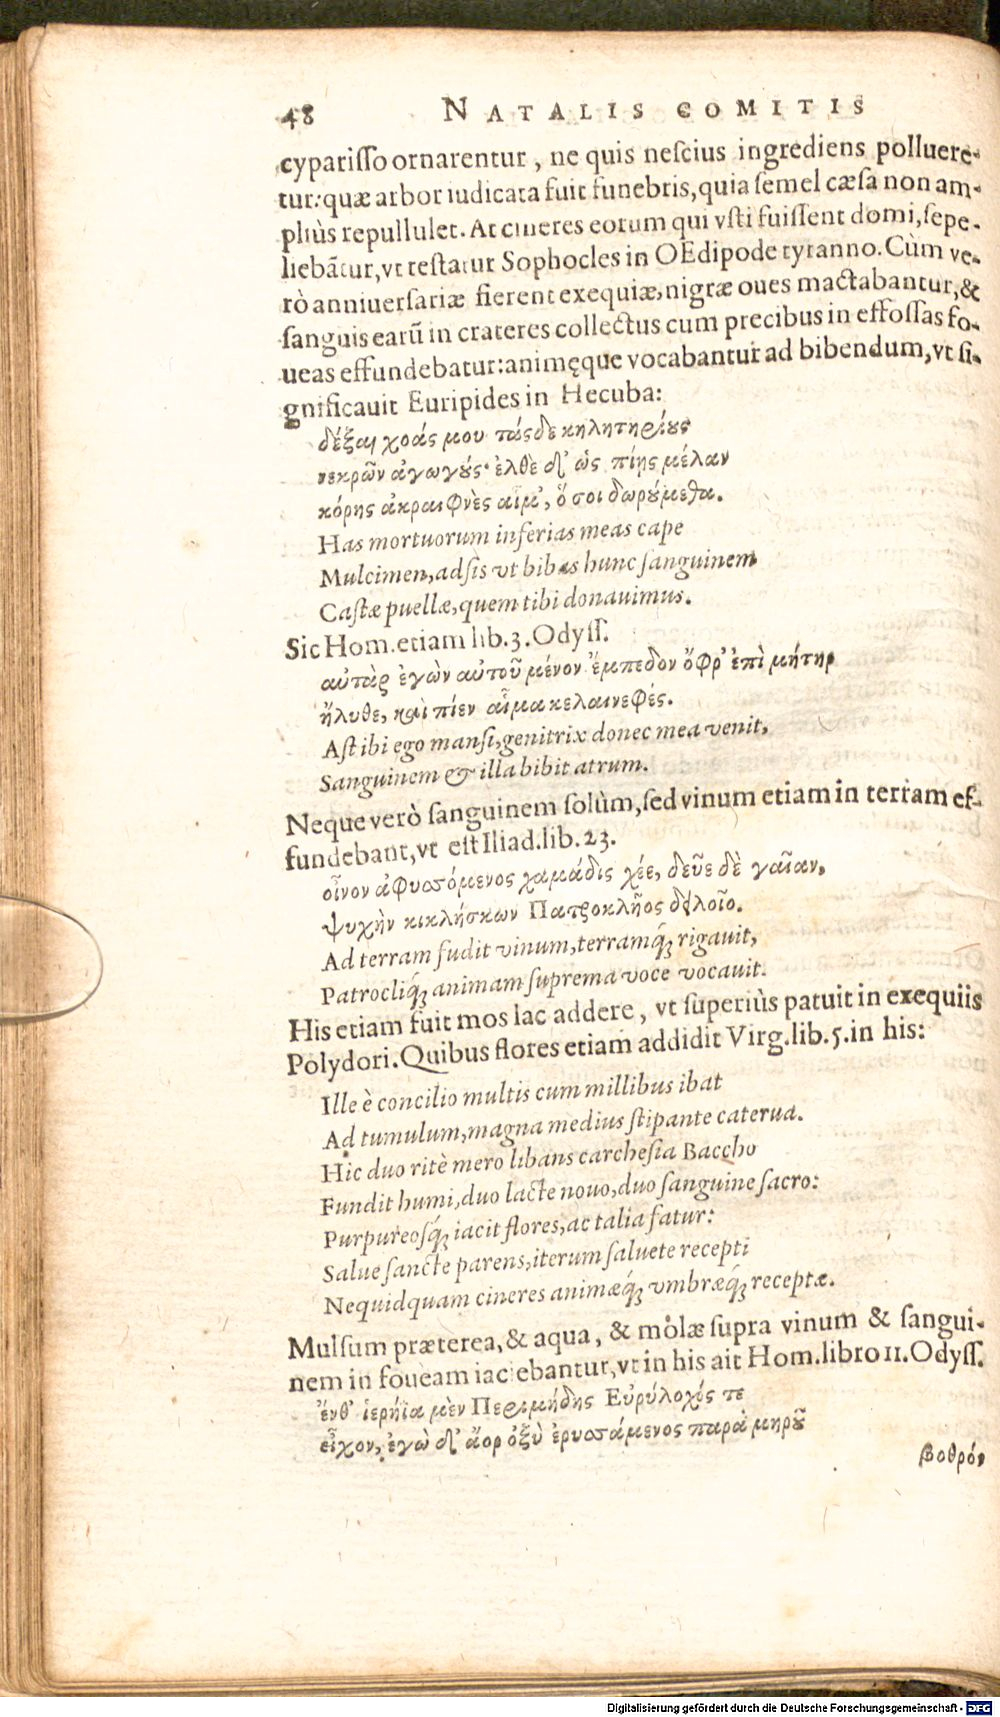 48 NATALIS COMITIS
cyparisso ornarentur, ne quis nescius ingrediens polluere-
tur: quæ arbor iudicata fuit funebris, quia semel cæsa non am-
pliùs repullulet. At cineres eorum qui vsti fuissent domi, sepe-
liebãtur, vt testatur Sophocles in OEdipode tyranno. Cùm ve-
rò anniuersariæ fierent exequiæ, nigræ oues mactabantur, &
sanguis earũ in crateres collectus cum precibus in effossas fo-
ueas effundebatur: animęque vocabantur ad bibendum, vt si-
gnificauit Euripides in Hecuba:
δέξαι χοάς μου τάσδε κηλητηρίους
νεκρῶν ἀγωγούς· ἐλθὲ δ' ὡς πίῃς μέλαν
κόρης ἀκραιφνὲς αἷμ', ὅ σοι δωρούμεθα.
Has mortuorum inferias meas cape
Mulcimen, adsis vt bibas hunc sanguinem
Castæ puellæ, quem tibi donauimus.
Sic Hom. etiam lib. 3. Odyss.
αὐτὰρ ἐγὼν αὐτοῦ μένον ἔμπεδον ὄφρ' ἐπὶ μήτηρ
ἤλυθε, καὶ πίεν αἷμα κελαινεφές.
Ast ibi ego mansi, genitrix donec mea venit,
Sanguinem & illa bibit atrum.
Neque verò sanguinem solùm, sed vinum etiam in terram ef-
fundebant, vt est Iliad. lib. 23.
οἶνον ἀφυσσόμενος χαμάδις χέε, δεῦε δὲ γαῖαν,
ψυχὴν κικλήσκων Πατροκλῆος δειλοῖο.
Ad terram fudit vinum, terramq́; rigauit,
Patrocliq́; animam suprema voce vocauit.
His etiam fuit mos lac addere, vt superiùs patuit in exequiis
Polydori. Quibus flores etiam addidit Virg. lib. 5. in his:
Ille è concilio multis cum millibus ibat
Ad tumulum, magna medius stipante caterua.
Hic duo ritè mero libans carchesia Baccho
Fundit humi, duo lacte nouo, duo sanguine sacro:
Purpureosq́; iacit flores, ac talia fatur:
Salue sancte parens, iterum saluete recepti
Nequidquam cineres animæq́; vmbræq́; receptæ.
Mulsum præterea, & aqua, & molæ supra vinum & sangui-
nem in foueam iaciebantur, vt in his ait Hom. libro 11. Odyss.
ἔνθ' ἱερήϊα μὲν Περιμήδης Εὐρύλοχός τε
εἶχον, ἐγὼ δ' ἄορ ὀξὺ ἐρυσσάμενος παρὰ μηροῦ
βοθρόν
Digitalisierung gefördert durch die Deutsche Forschungsgemeinschaft - DFG